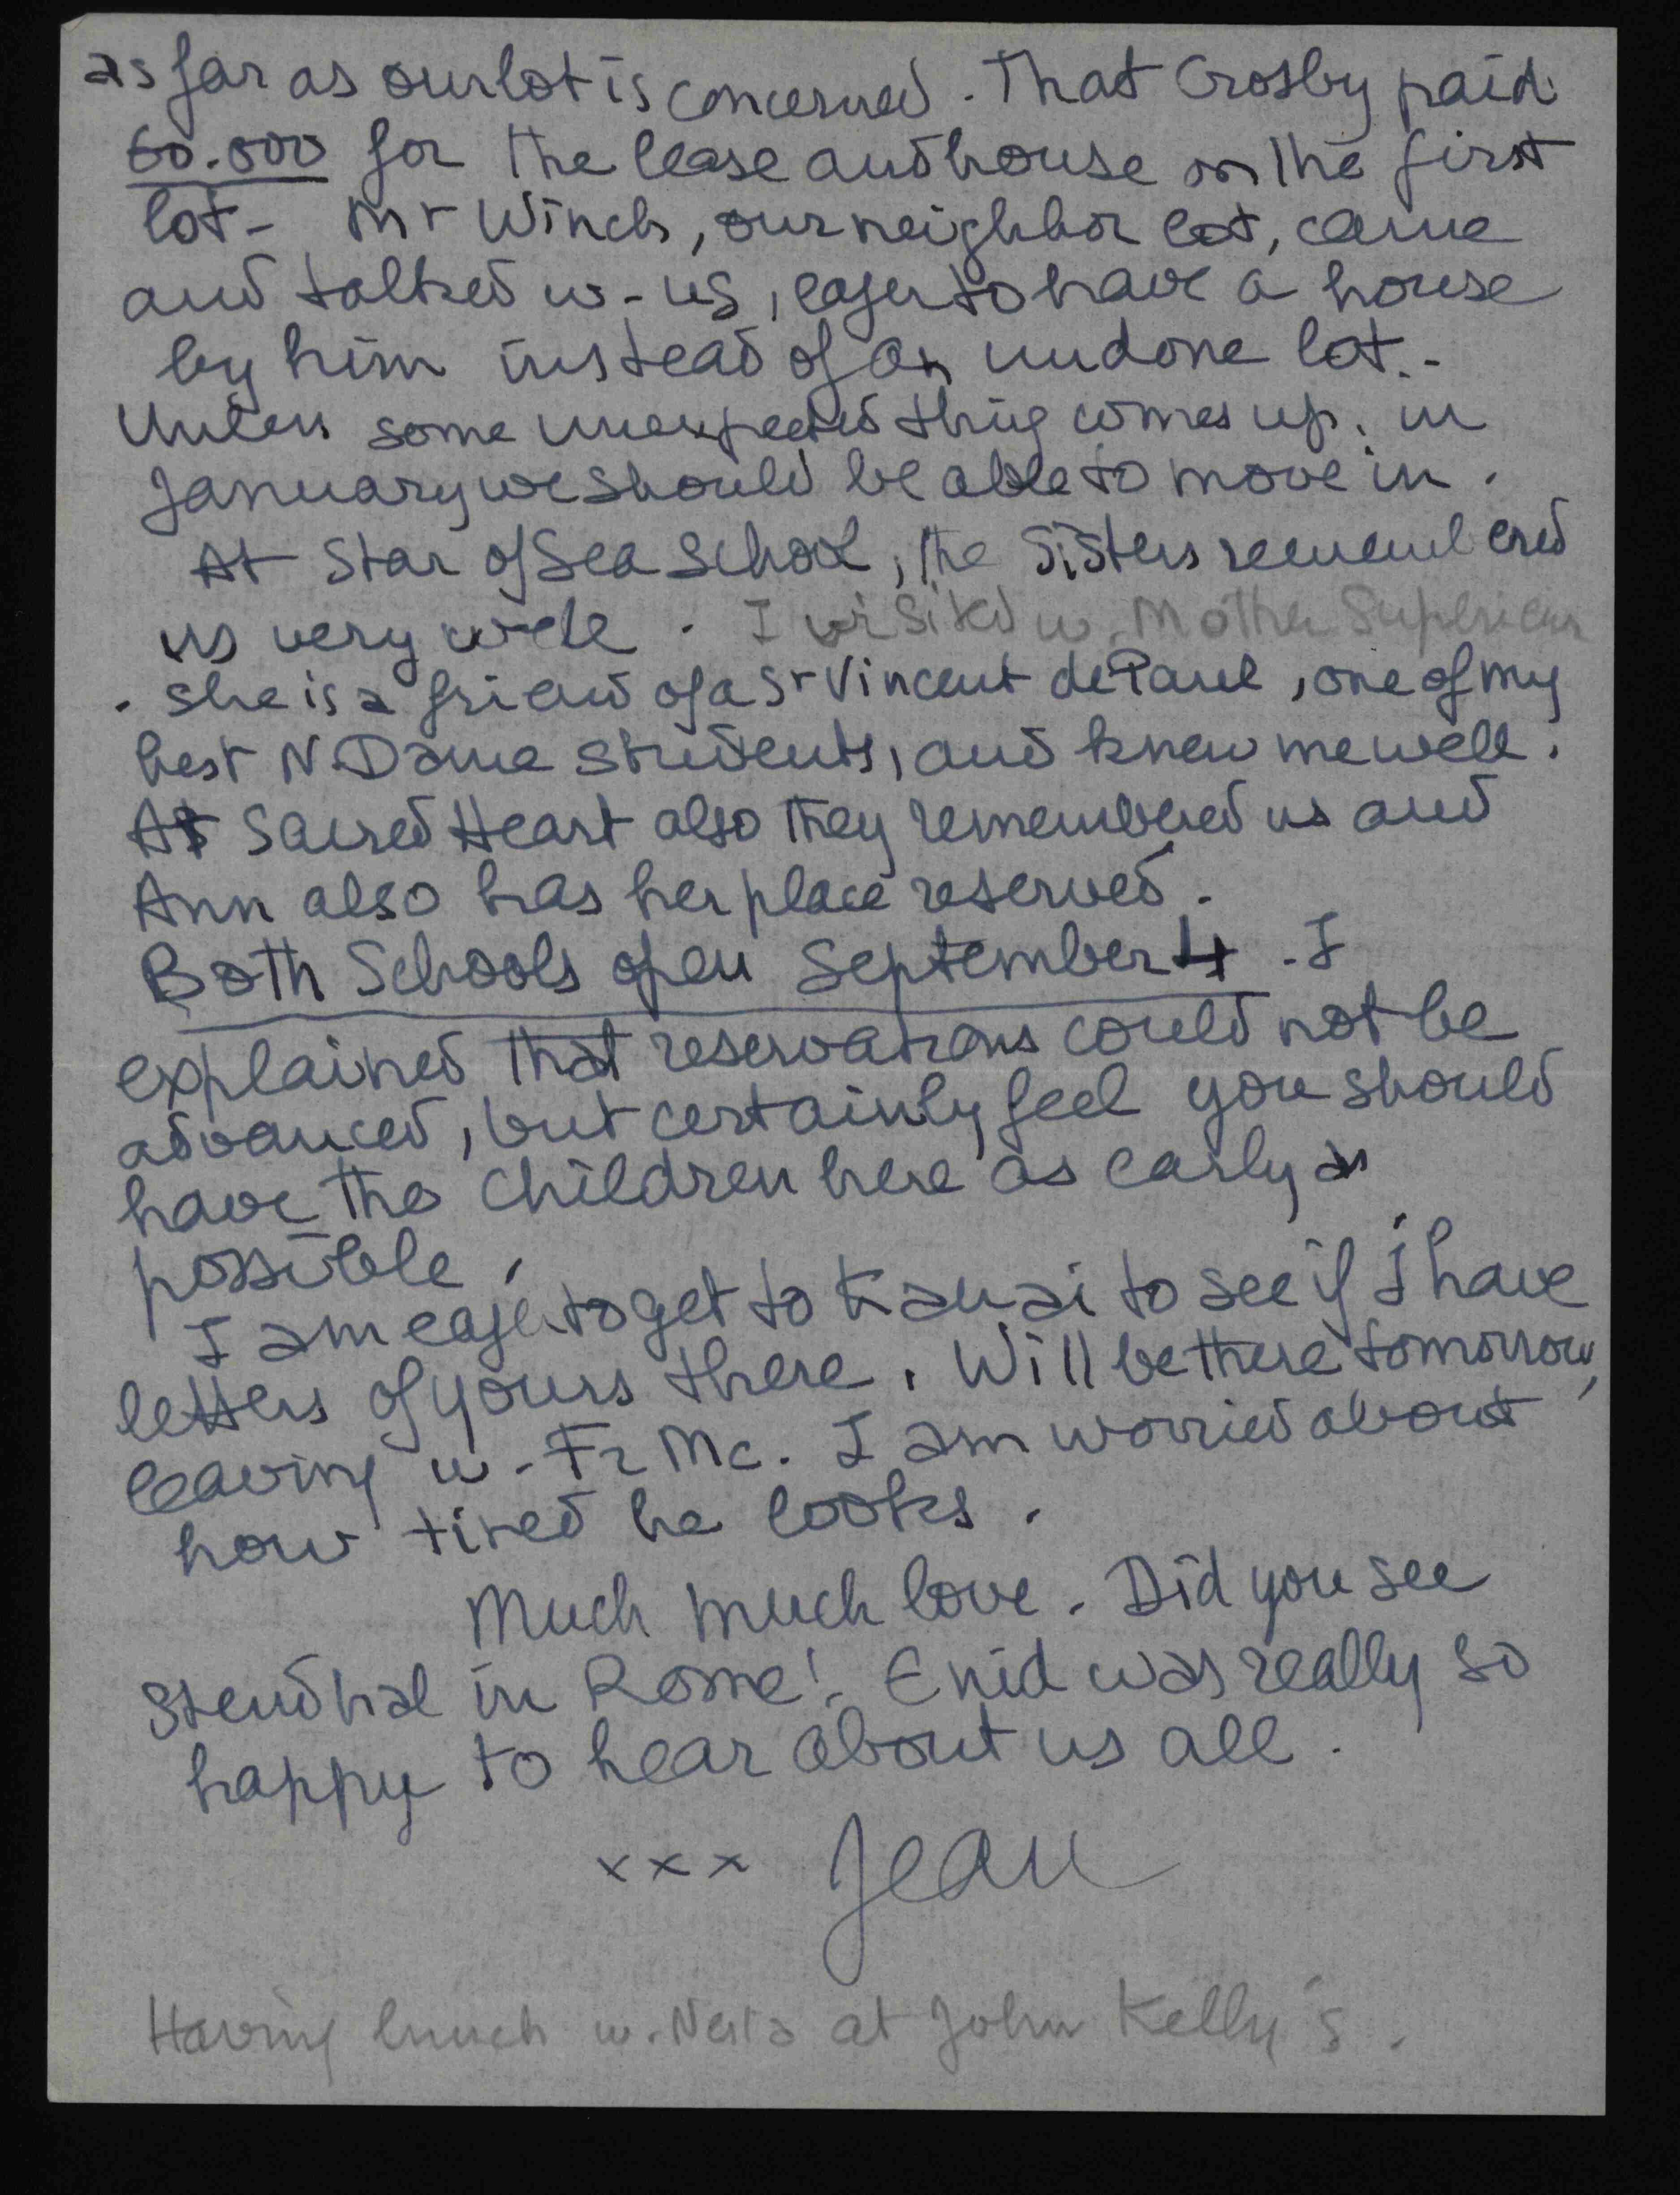 as far as our lot is concerned. That Crosby paid
60.000 for the lease and house on the first
lot - Mr Winch, our neighbor lot, came
and talked w- us, eager to have a house
by him instead of an undone lot.-
Unless some unexpected thing comes up, in
January we should be able to move in.
At Star of Sea School, the Sisters remembered
us very well. I visited w. Mother Superieur
. She is a friend of a Sr Vincent de Paul, one of my
best N.Dame students, and knew me well.
At Sacred Heart also they remembered us and
Ann also has her place reserved.
Both Schools open September 4. I
explained that reservations could not be
advanced, but certainly feel you should
have the children here as early as
possible.
I am eager to get to Kauai to see if I have
letters of yours there. Will be there tomorrow,
leaving w- Fr Mc. I am worried about
how tired he looks.
Much much love. Did you see
Stendhal in Rome! Enid was really so
happy to hear about us all.
xxx Jean
Having lunch w. at John Kelly's.